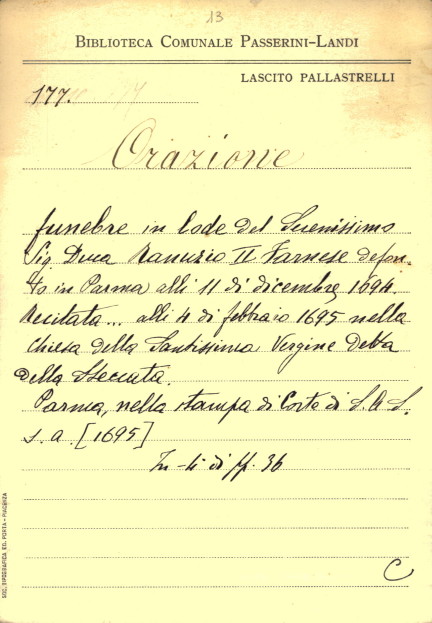 13
BIBLIOTECA COMUNALE PASSERINI-LANDI
LASCITO PALLASTRELLI
177.
Orazione
funebre in lode del Serenissimo
Sig. Duca Ranuzio II Farnese defon-
to in Parma alli 11 di dicembre, 1694.
Recitata... alli 4 di febbraio 1695 nella
Chiesa della Santissima Vergine Detta
della Steccata.
Parma, nella stampa di Corte di S. A. S.
s. a. [1695]
In-4 di pp. 36
C
SOC. TIPOGRAFICA ED. PORTA - PIACENZA